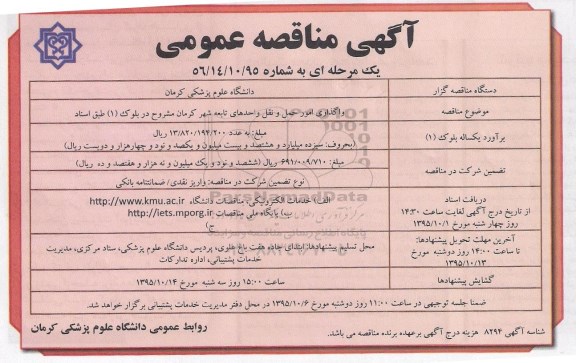 آگهی مناقصه عمومی
یک مرحله ای به شماره ۵۶/۱۴/۱۰/۹۵
دستگاه مناقصه گزار
دانشگاه علوم پزشکی کرمان
موضوع مناقصه
واگذاری امور حمل و نقل واحدهای تابعه شهر کرمان مشروح در بلوک (۱) طبق اسناد
برآورد یکساله بلوک (۱)
مبلغ: به عدد ۱۳/۸۲۰/۱۹۴/۲۰۰ ریال
(بحروف: سیزده میلیارد و هشتصد و بیست میلیون و یکصد و نود و چهارهزار و دویست ریال)
تضمین شرکت در مناقصه
مبلغ: ۶۹۱/۰۰۹/۷۱۰ ریال (ششصد و نود و یک میلیون و نه هزار و هفتصد و ده ریال)
نوع تضمین شرکت در مناقصه: واریز نقدی/ ضمانتنامه بانکی
دریافت اسناد
از تاریخ درج آگهی لغایت ساعت ۱۴:۳۰
روز چهار شنبه مورخ ۱۳۹۵/۱۰/۱
الف) خدمات الکترونیکی مناقصات دانشگاه http://www.kmu.ac.ir
ب) پایگاه ملی مناقصات http://iets.mporg.ir
ج)
آخرین مهلت تحویل پیشنهادها:
تا ساعت ۱۴:۰۰ روز دوشنبه مورخ
۱۳۹۵/۱۰/۱۳
محل تسلیم پیشنهادها: ابتدای جاده هفت باغ علوی، پردیس دانشگاه علوم پزشکی، ستاد مرکزی، مدیریت
خدمات پشتیبانی، اداره تدارکات
گشایش پیشنهادها
ساعت ۱۵:۰۰ روز سه شنبه مورخ ۱۳۹۵/۱۰/۱۴
ضمنا جلسه توجیهی در ساعت ۱۱:۰۰ روز دوشنبه مورخ ۱۳۹۵/۱۰/۶ در محل دفتر مدیریت خدمات پشتیبانی برگزار خواهد شد.
شناسه آگهی ۸۲۹۴ هزینه درج آگهی برعهده برنده مناقصه می باشد.
روابط عمومی دانشگاه علوم پزشکی کرمان
ParsNamadData